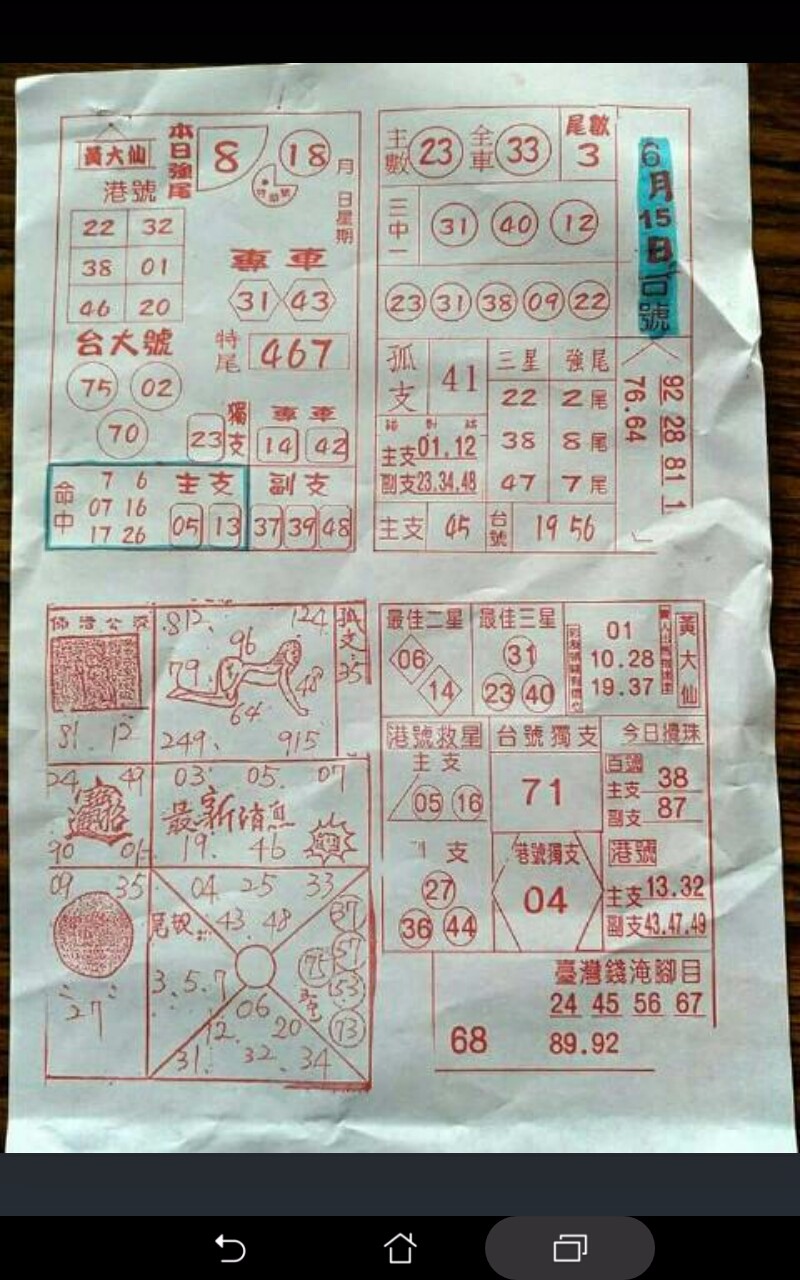 黃大仙
本日強尾
8
18
月
日星期
港號
22 32
38 01
46 20
專車
31 43
台大號
75 02
70
特尾
467
獨支
23
專車
14 42
命中
7 6
07 16
17 26
主支
05 13
副支
37 39 48
主數
23
全車
33
尾數
3
三中一
31 40 12
23 31 38 09 22
孤支
41
三星 強尾
22 2尾
38 8尾
47 7尾
主支01.12
副支23.34.48
主支 45
台號
19 56
6月15日台號
92 28 81 1
76.64
812 124
96
79
48
64
249 915
孤支
35
31. 12
24 49
90
03 05 07
最新消息
19. 46
09 35
27
04 25 33
43 48
3.5.7
06
12 20
31. 32 34
37
57
75
53
73
最佳二星
06
14
最佳三星
31
23 40
01
10.28
19.37
黃大仙
港號救星
主支
05 16
支
27
36 44
台號獨支
71
港號獨支
04
今日攪珠
百號
主支 38
副支 87
港號
主支13.32
副支43.47.49
臺灣錢淹腳目
24 45 56 67
68 89.92